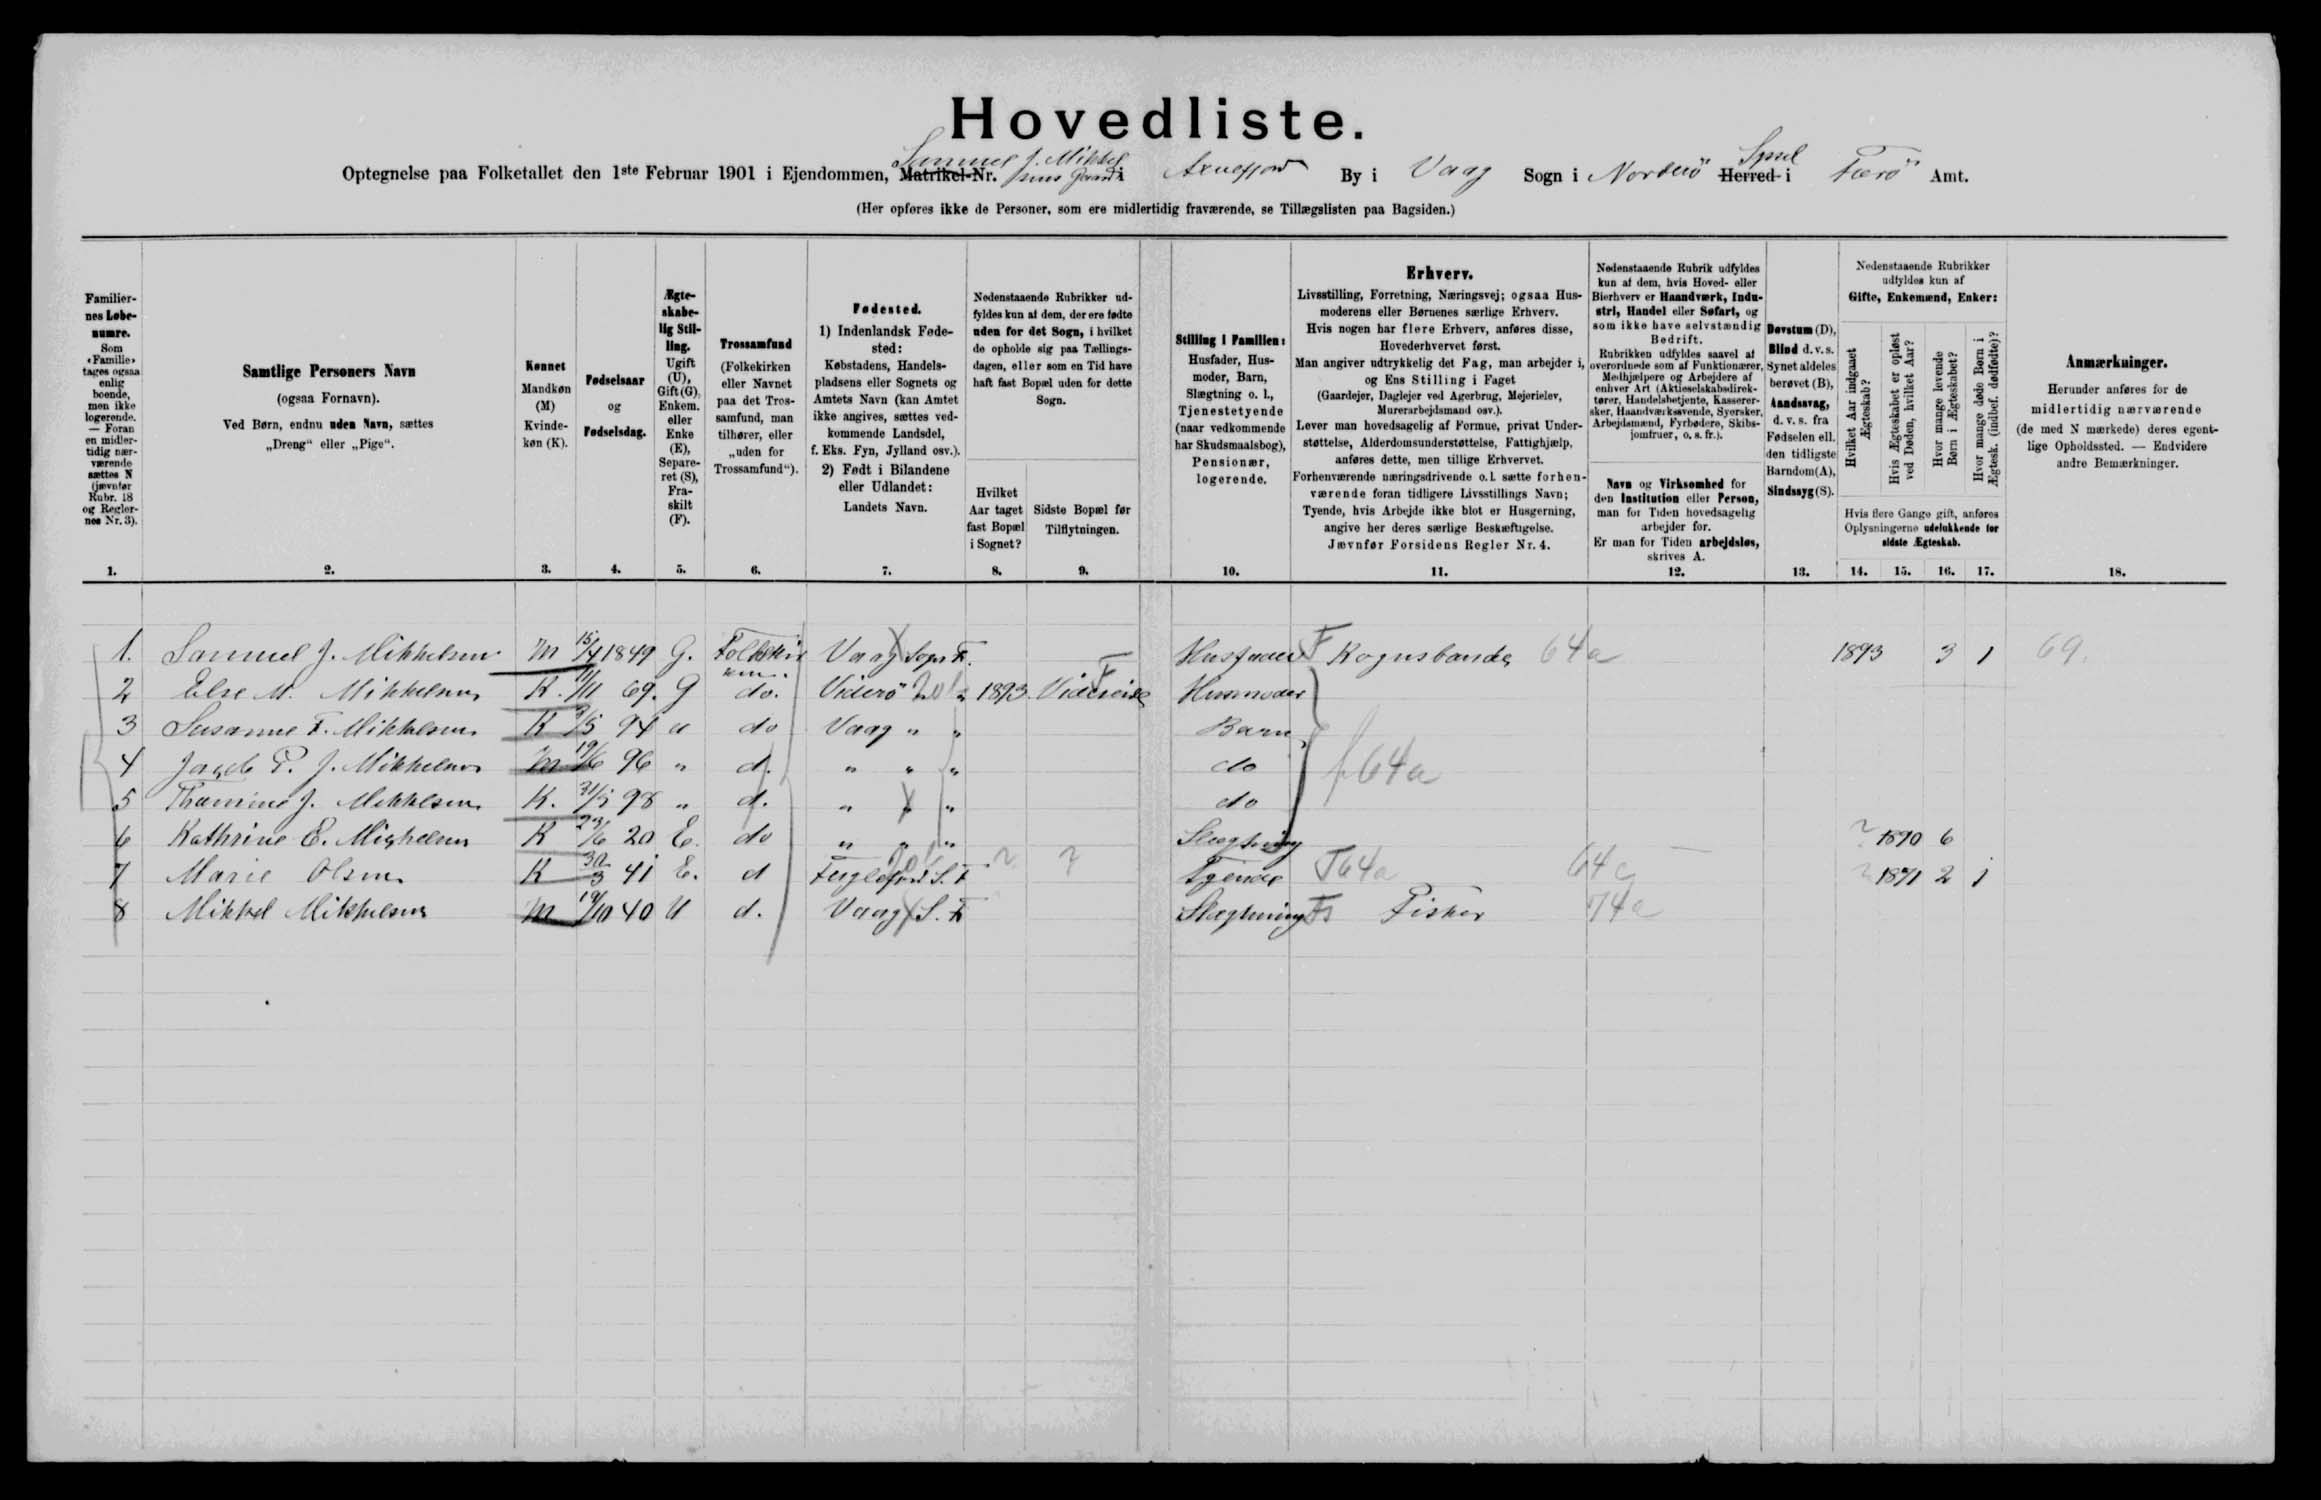 Hovedliste.
Optegnelse paa Folketallet den 1ste Februar 1901 i Ejendommen, Matrikel-Nr. Samuel J. Mikkelsens i Arnefjord By i Vaag Sogn i Norderö Herred Syssel i Færö Amt.
(Her opføres ikke de Personer, som ere midlertidig fraværende, se Tillægslisten paa Bagsiden.)
Familiernes Løbenumre. Som «Familie» tages ogsaa enlig boende, men ikke logerende. — Foran en midlertidig nærværende sættes N (jævnfør Rubr. 18 og Reglernes Nr. 3).
Samtlige Personers Navn (ogsaa Fornavn). Ved Børn, endnu uden Navn, sættes „Dreng“ eller „Pige“.
Kønnet Mandkøn (M) Kvindekøn (K).
Fødselsaar og Fødselsdag.
Ægteskabelig Stilling. Ugift (U), Gift (G), Enkem. eller Enke (E), Separeret (S), Fraskilt (F).
Trossamfund (Folkekirken eller Navnet paa det Trossamfund, man tilhører, eller „uden for Trossamfund“).
Fødested. 1) Indenlandsk Fødested: Købstadens, Handelspladsens eller Sognets og Amtets Navn (kan Amtet ikke angives, sættes vedkommende Landsdel, f. Eks. Fyn, Jylland osv.). 2) Født i Bilandene eller Udlandet: Landets Navn.
Nedenstaaende Rubrikker udfyldes kun af dem, der ere fødte uden for det Sogn, i hvilket de opholde sig paa Tællingsdagen, eller som en Tid have haft fast Bopæl uden for dette Sogn.
Hvilket Aar taget fast Bopæl i Sognet?
Sidste Bopæl før Tilflytningen.
Stilling i Familien: Husfader, Husmoder, Barn, Slægtning o. l., Tjenestetyende (naar vedkommende har Skudsmaalsbog), Pensionær, logerende.
Erhverv.
Livsstilling, Forretning, Næringsvej; ogsaa Husmoderens eller Børnenes særlige Erhverv.
Hvis nogen har flere Erhverv, anføres disse, Hovederhvervet først.
Man angiver udtrykkelig det Fag, man arbejder i, og Ens Stilling i Faget
(Gaardejer, Daglejer ved Agerbrug, Mejerielev, Murerarbejdsmand osv.).
Lever man hovedsagelig af Formue, privat Understøttelse, Alderdomsunderstøttelse, Fattighjælp, anføres dette, men tillige Erhvervet.
Forhenværende næringsdrivende o. l. sætte forhenværende foran tidligere Livsstillings Navn;
Tyende, hvis Arbejde ikke blot er Husgerning, angive her deres særlige Beskæftigelse.
Jævnfør Forsidens Regler Nr. 4.
Nedenstaaende Rubrik udfyldes kun af dem, hvis Hoved- eller Bierhverv er Haandværk, Industri, Handel eller Søfart, og som ikke have selvstændig Bedrift.
Rubrikken udfyldes saavel af overordnede som af Funktionærer, Medhjælpere og Arbejdere af enhver Art (Aktieselskabsdirektører, Handelsbetjente, Kasserersker, Haandværkssvende, Syersker, Arbejdsmænd, Fyrbødere, Skibsjomfruer, o. s. fr.).
Navn og Virksomhed for den Institution eller Person, man for Tiden hovedsagelig arbejder for.
Er man for Tiden arbejdsløs, skrives A.
Døvstum (D), Blind d. v. s. Synet aldeles berøvet (B), Aandssvag, d. v. s. fra Fødselen ell. den tidligste Barndom (A), Sindssyg (S).
Nedenstaaende Rubrikker udfyldes kun af Gifte, Enkemænd, Enker:
Hvilket Aar indgaaet Ægteskab?
Hvis Ægteskabet er opløst ved Døden, hvilket Aar?
Hvor mange levende Børn i Ægteskabet?
Hvor mange døde Børn i Ægtesk. (indbef. dødfødte)?
Hvis flere Gange gift, anføres Oplysningerne udelukkende for sidste Ægteskab.
Anmærkninger.
Herunder anføres for de midlertidig nærværende (de med N mærkede) deres egentlige Opholdssted. — Endvidere andre Bemærkninger.
1. 2. 3. 4. 5. 6. 7. 8. 9. 10. 11. 12. 13. 14. 15. 16. 17. 18.
1. Samuel J. Mikkelsen M 15/4 1849 G. Folkekirken Vaag Sogn F. Husfader F Kognsbonde 64a 1893 3 1 69.
2 Else M. Mikkelsen K. 11/11 69. G do. Viderö 1893. Videreide F Husmoder
3 Susanne F. Mikkelsen K /5 94 u do Vaag " " Barn
4 P. J. Mikkelsen M 19/6 96 " d. " " " do f 64a
5 Thomine J. Mikkelsen K. 31/5 98 " d. " " " do
6 Kathrine E. Mighelsen K 23/6 20 E. do " " " Slægtning ? 1890 6
7 Marie Olsen K 30/3 41 E. d Fuglefjord S. F ? ? Tjende T64a 64c ? 1891 2 1
8 Mikkel Mikkelsen M 19/10 40 U d. Vaag S. F Slægtning Fs Fisker 74a